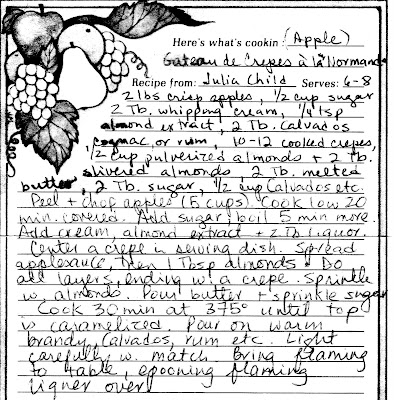 Here's what's cookin: (Apple)
Gateau de Crepes à la Normande
Recipe from: Julia Child Serves: 6-8
2 lbs crisp apples, 1/2 cup sugar
2 Tb. whipping cream, 1/4 tsp
almond extract, 2 Tb. Calvados
cognac, or rum, 10-12 cooked crepes,
1/2 cup pulverized almonds + 2 Tb.
slivered almonds, 2 Tb. melted
butter, 2 Tb. sugar, 1/2 cup Calvados etc.
Peel + chop apples (5 cups). Cook low 20
min. covered. Add sugar, boil 5 min more.
Add cream, almond extract + 2 Tb liquor.
Center a crepe in serving dish. Spread
applesauce, then 1 Tbsp almonds. Do
all layers, ending w. a crepe. Sprinkle
w. almonds. Pour butter + sprinkle sugar
Cook 30 min at 375° until top
is caramelized. Pour on warm
brandy, Calvados, rum etc. Light
carefully w. match. Bring flaming
to table, spooning flaming
liquer over